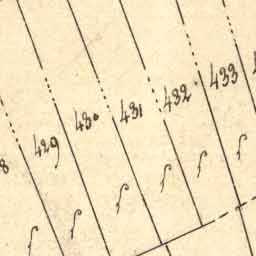 8 429 430 431 432 433